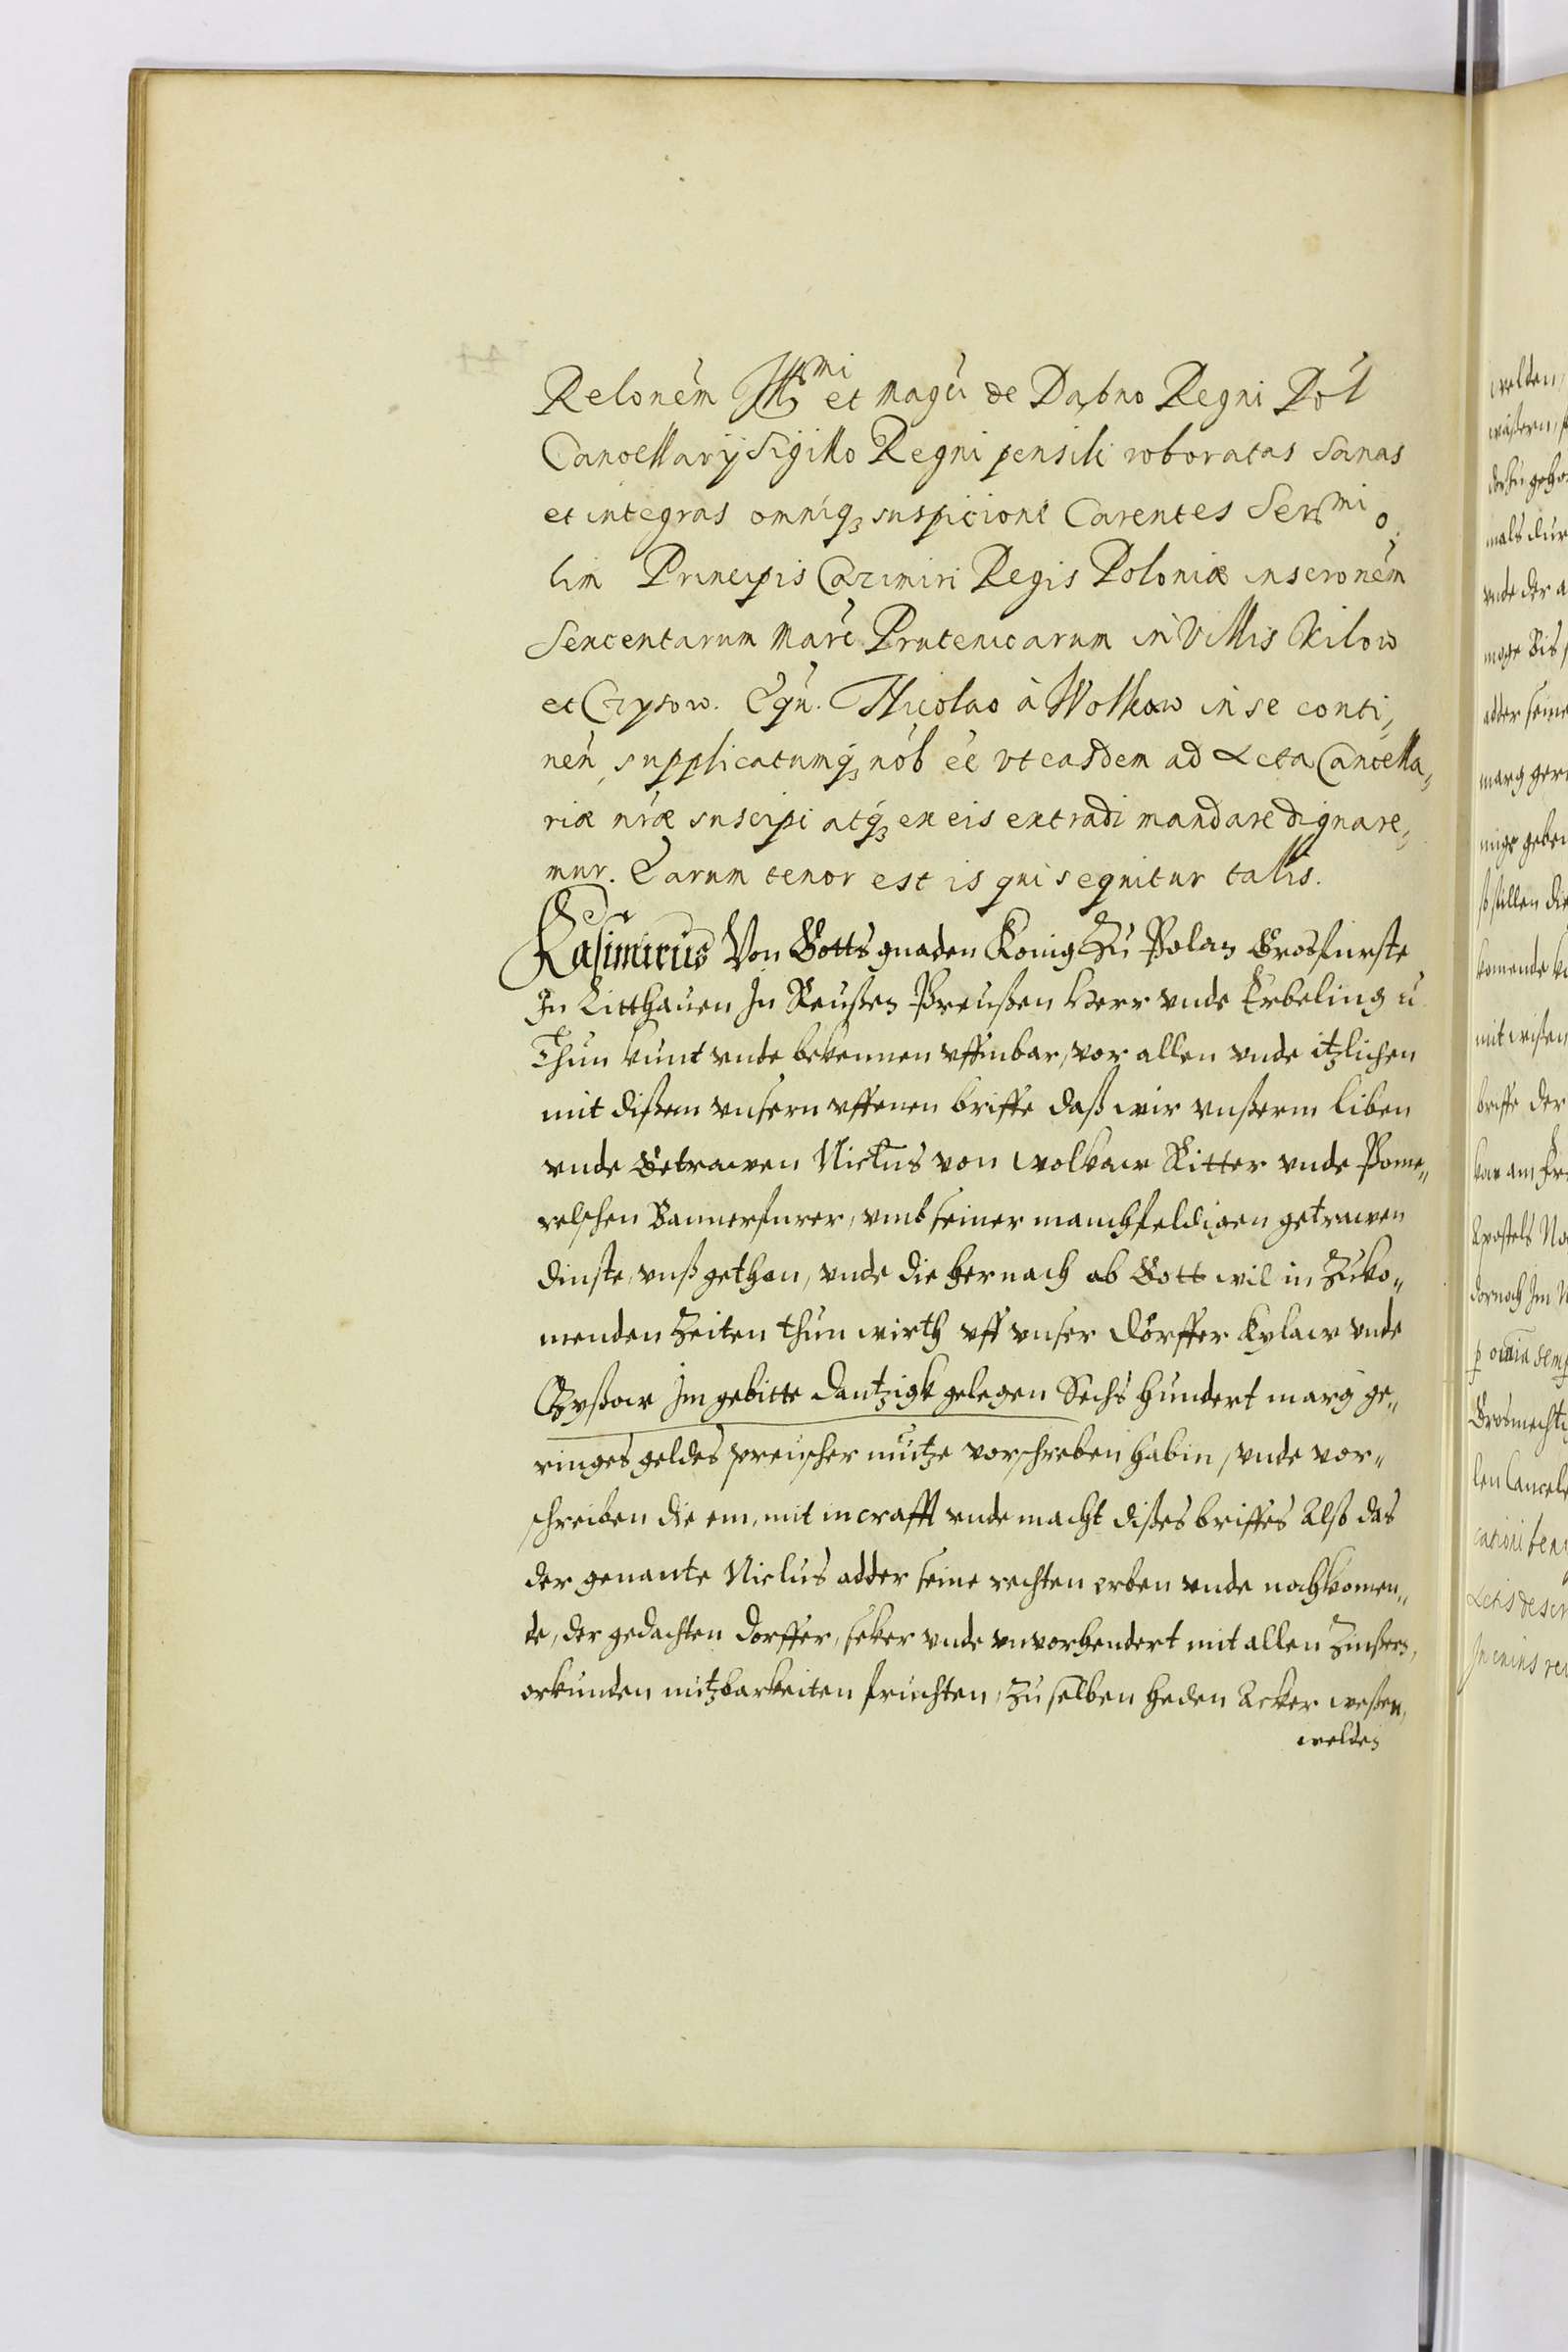 Relonem Illmi et magci de Dabno Regni Pol
Cancellarij Sigillo Regni pensili roboratas Sanas
et integras omniq3 suspicione Carentes Sermi o
lim Principis Cazimiri Regis Poloniæ inscronem
Sexcentarum Marc Prutenicarum in Villis Kilow
et Czysow. Equ. Nicolao à Wolkow in se conti¸
nen, supplicatumq3 nob eē vt easdem ad Acta Cancella¸
riæ nræ suscipi atq3 ex eis extradi mandare dignare¸
mur. Earum tenor est is qui sequitur talis.
Kasimirius Von Gotts gnaden Konig Zu Polan Grosfurste
In Litthauen In Reußen Preußen Herr vnde Erbeling u
Thun kunt vnde bekennen vffinbar, vor allen vnde itzlichen
mit dißem vnsern vffenen briffe daß wir vnßerm liben
vnde Getrawen Niclus von wolkaw Ritter vnde Pome„
relschen Bannerfurer, vmb seiner manchfeldigen getrawen
dinste, vnß gethan, vnde die hernach ab Gott wil in Zuko„
menden Zeiten thun wirth vff vnser Dörffer Kylaw vnde
Czyßow Im gebitte Dantzigk gelegen Sechs hundert marg ge„
ringes geldes preuscher mutze vorschreben habin, vnde vor„
schreiben die em, mit in crafft vnde macht dißes briffes Also das
der genante Niclus adder seine rechten erben vnde nochkomen„
de, der gedachten dorffer, seker vnde vnvorhendert mit allen Zinßen,
orkunden nutzbarkeiten fruchten, Zu selben heden Acker weßen,
welden